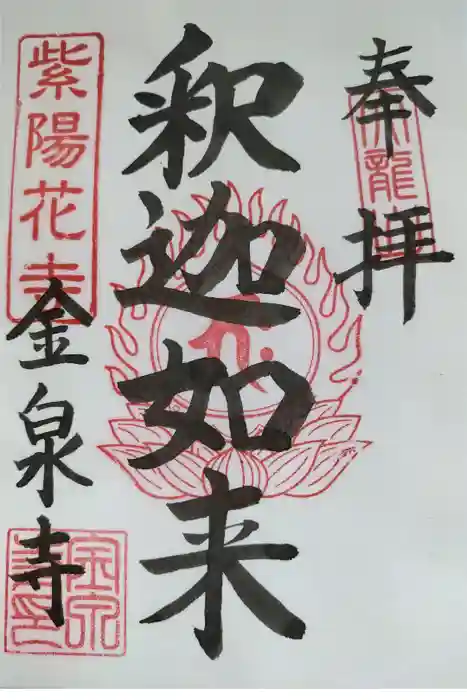 奉拝
龍
釈迦如来
紫陽花寺
金泉寺